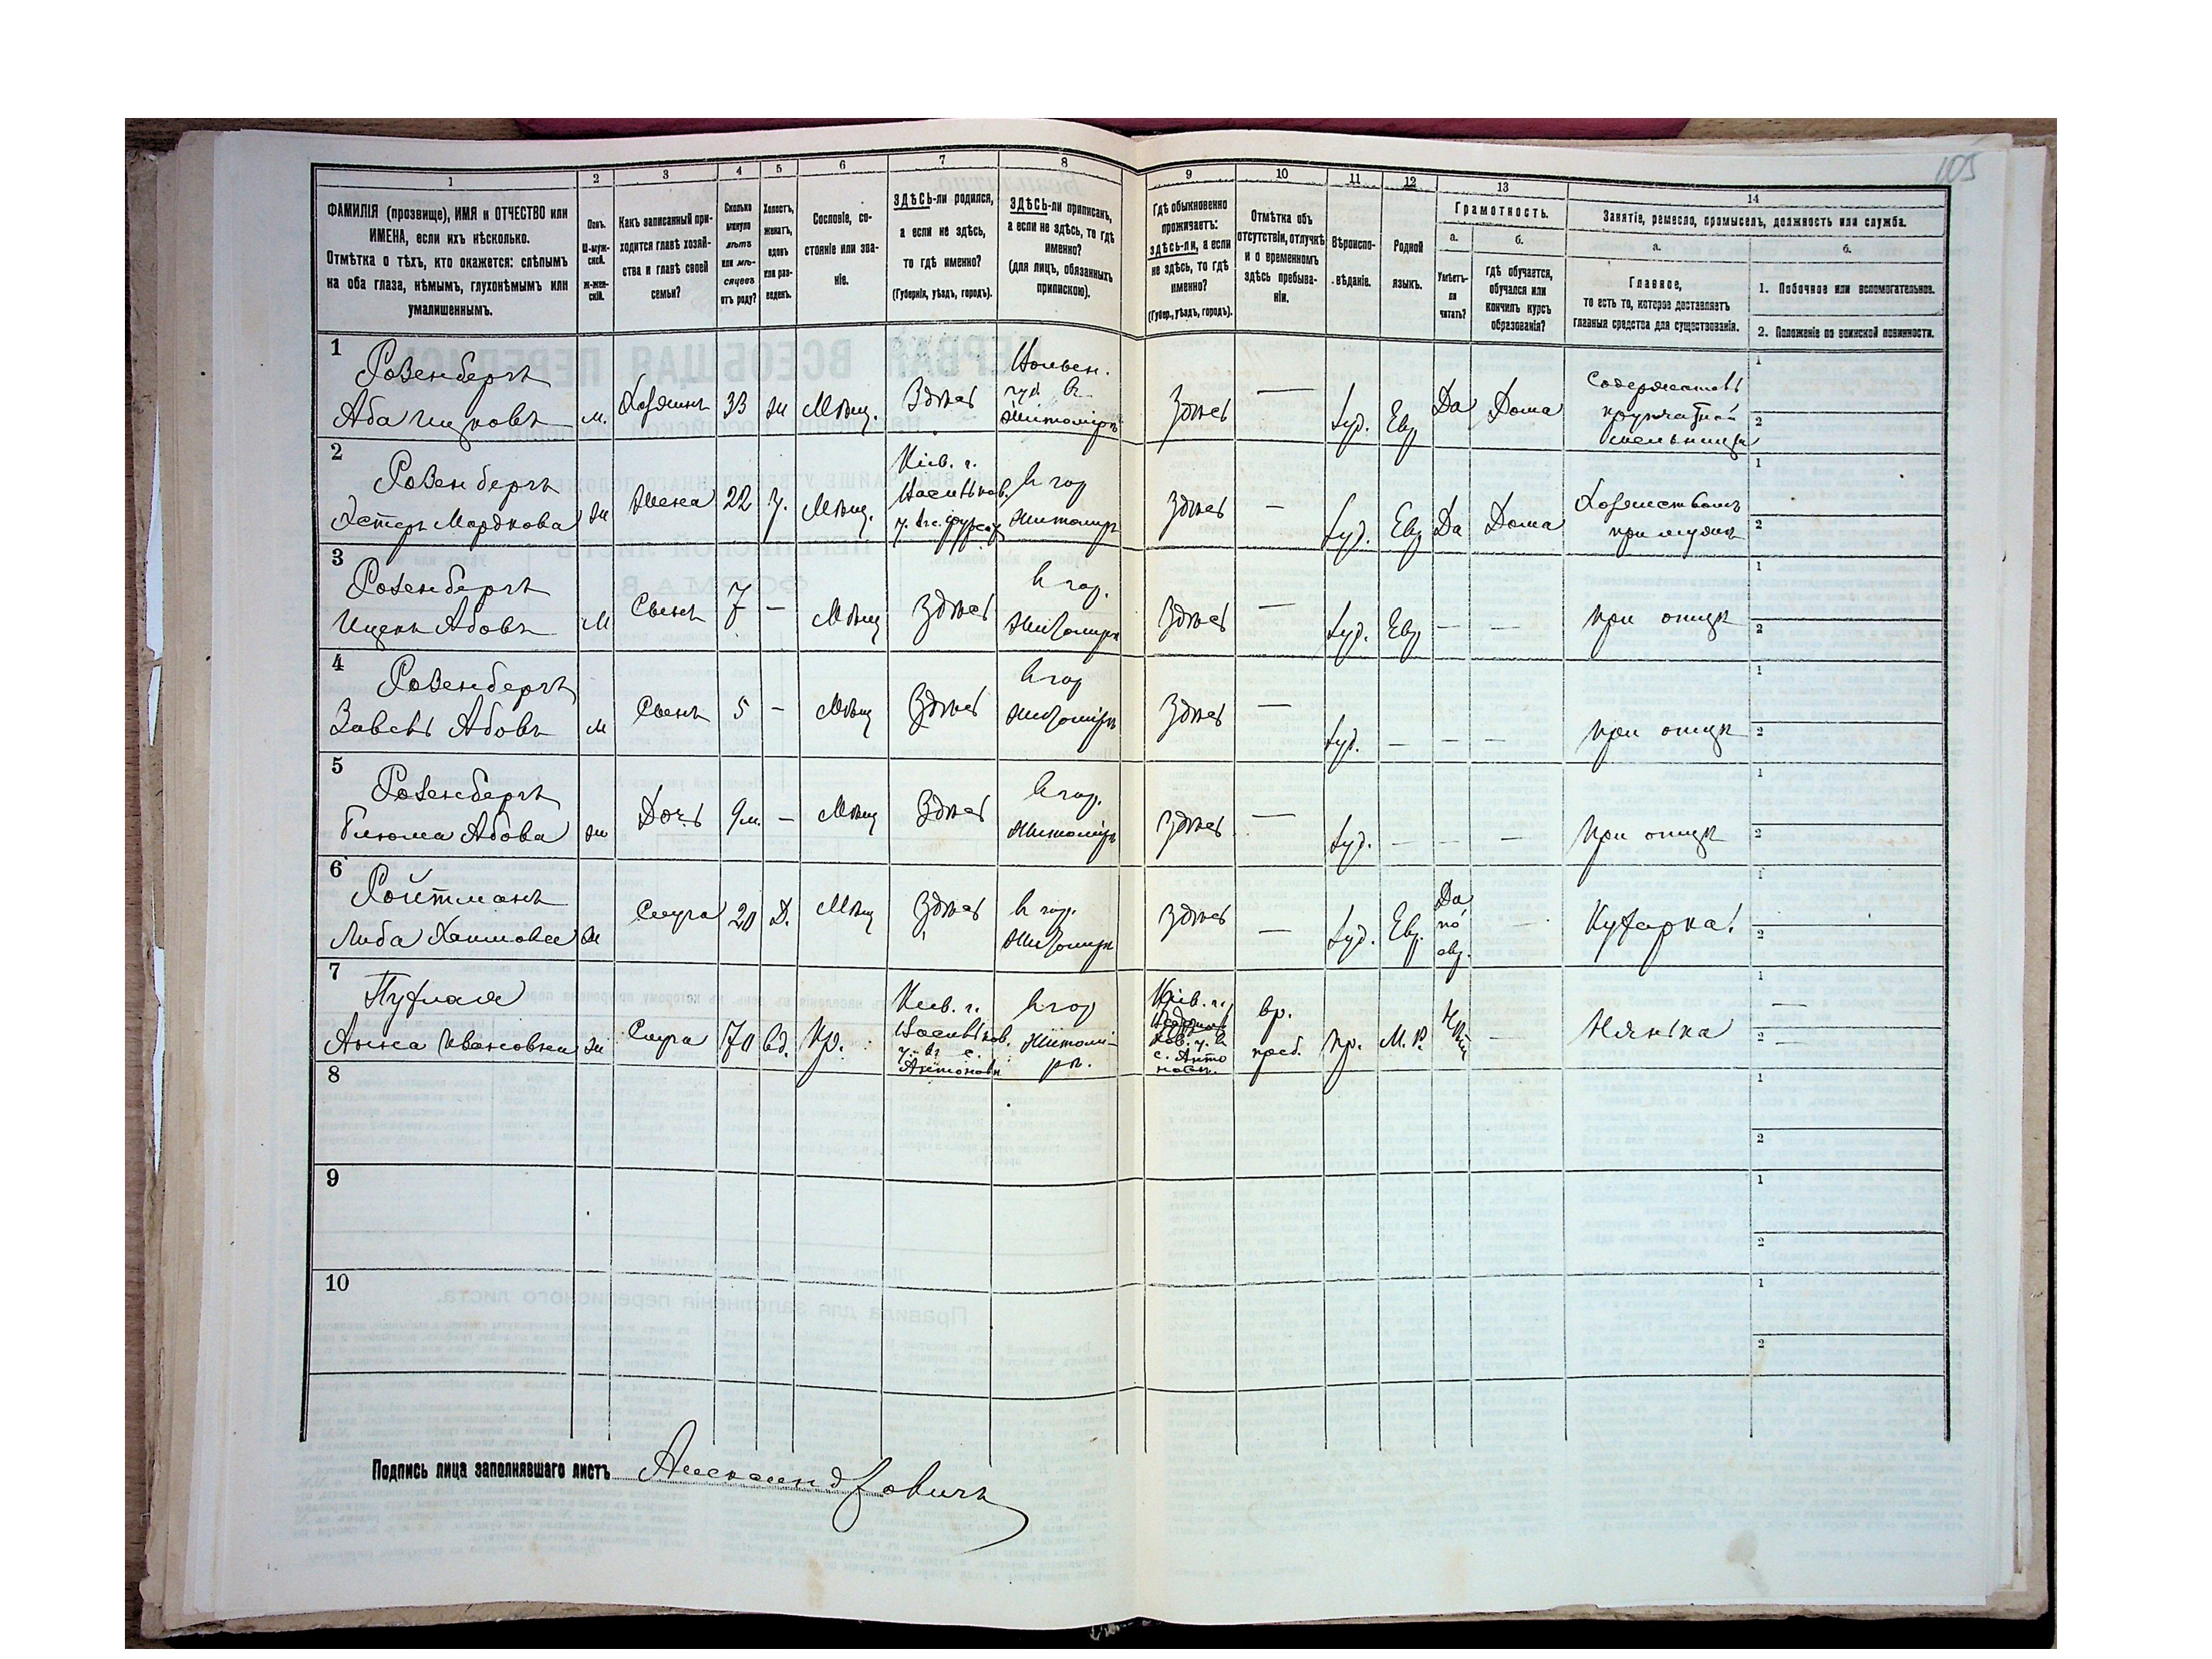 105
1 2 3 4 5 6 7 8 9 10 11 12 13 14
ФАМИЛІЯ (прозвище), ИМЯ и ОТЧЕСТВО или ИМЕНА, если ихъ нѣсколько.
Отмѣтка о тѣхъ, кто окажется: слѣпымъ на оба глаза, нѣмымъ, глухонѣмымъ или умалишеннымъ.
Полъ. М-мужской. Ж-женскій.
Какъ записанный приходится главѣ хозяйства и главѣ своей семьи?
Сколько минуло лѣтъ или мѣсяцевъ отъ роду?
Холостъ, женатъ, вдовъ или разведенъ.
Сословіе, состояніе или званіе.
ЗДѢСЬ-ли родился, а если не здѣсь, то гдѣ именно?
(Губернія, уѣздъ, городъ).
ЗДѢСЬ-ли приписанъ, а если не здѣсь, то гдѣ именно?
(для лицъ, обязанныхъ припискою).
Гдѣ обыкновенно проживаетъ: здѣсь-ли, а если не здѣсь, то гдѣ именно?
(Губер., уѣздъ, городъ).
Отмѣтка объ отсутствіи, отлучкѣ и о временномъ здѣсь пребываніи.
Вѣроисповѣданіе.
Родной языкъ.
Грамотность.
а. Умѣетъ-ли читать?
б. гдѣ обучается, обучался или кончилъ курсъ образованія?
Занятіе, ремесло, промыселъ, должность или служба.
а. Главное, то есть то, которое доставляетъ главныя средства для существованія.
б.
1. Побочное или вспомогательное.
2. Положеніе по воинской повинности.
1 Розенбергъ Аба Ицковъ м. Хозяинъ 33 ж Мѣщ. Здѣсь Волын. губ. въ Житомірѣ Здѣсь — Іуд. Евр Да Дома Содержатель крупчатной мельницы 1 2
2 Розенбергъ Хстерь Мордкова ж Жена 22 З. Мѣщ. Кіев. г. Васильков. у. въ с. В гор Житомірѣ Здѣсь — Іуд. Евр Да Дома Хозяйствомъ при мужѣ 1 2
3 Розенбергъ Ицекъ Абовъ М Сынъ 7 — Мѣщ Здѣсь В гор. Житомірѣ Здѣсь — Іуд. Евр — — при отцѣ 1 2
4 Розенбергъ Завель Абовъ м Сынъ 5 — Мѣщ Здѣсь В гор Житомірѣ Здѣсь — Іуд. — — — при отцѣ 1 2
5 Розенбергъ Блюма Абова ж Дочь 9 м. — Мѣщ Здѣсь В гор. Житомірѣ Здѣсь — Іуд. — — — при отцѣ 1 2
6 Ройтманъ Либа Хаимова ж Слуга 20 Д. Мѣщ Здѣсь В гор. Житомірѣ Здѣсь — Іуд. Евр. Да по евр. — Кухарка 1 2
7 Анна Ивановна ж Слуга 70 вд. Кр. Кіев. г. Васильков. у. въ с. Антоновѣ В гор Житомірѣ. Кіев. г. у. в с. Антоновѣ. вр. преб. Пр. М. Р. Нѣтъ — Нянька 1 — 2 —
8 1 2
9 1 2
10 1 2
Подпись лица заполнявшаго листъ Александровичъ